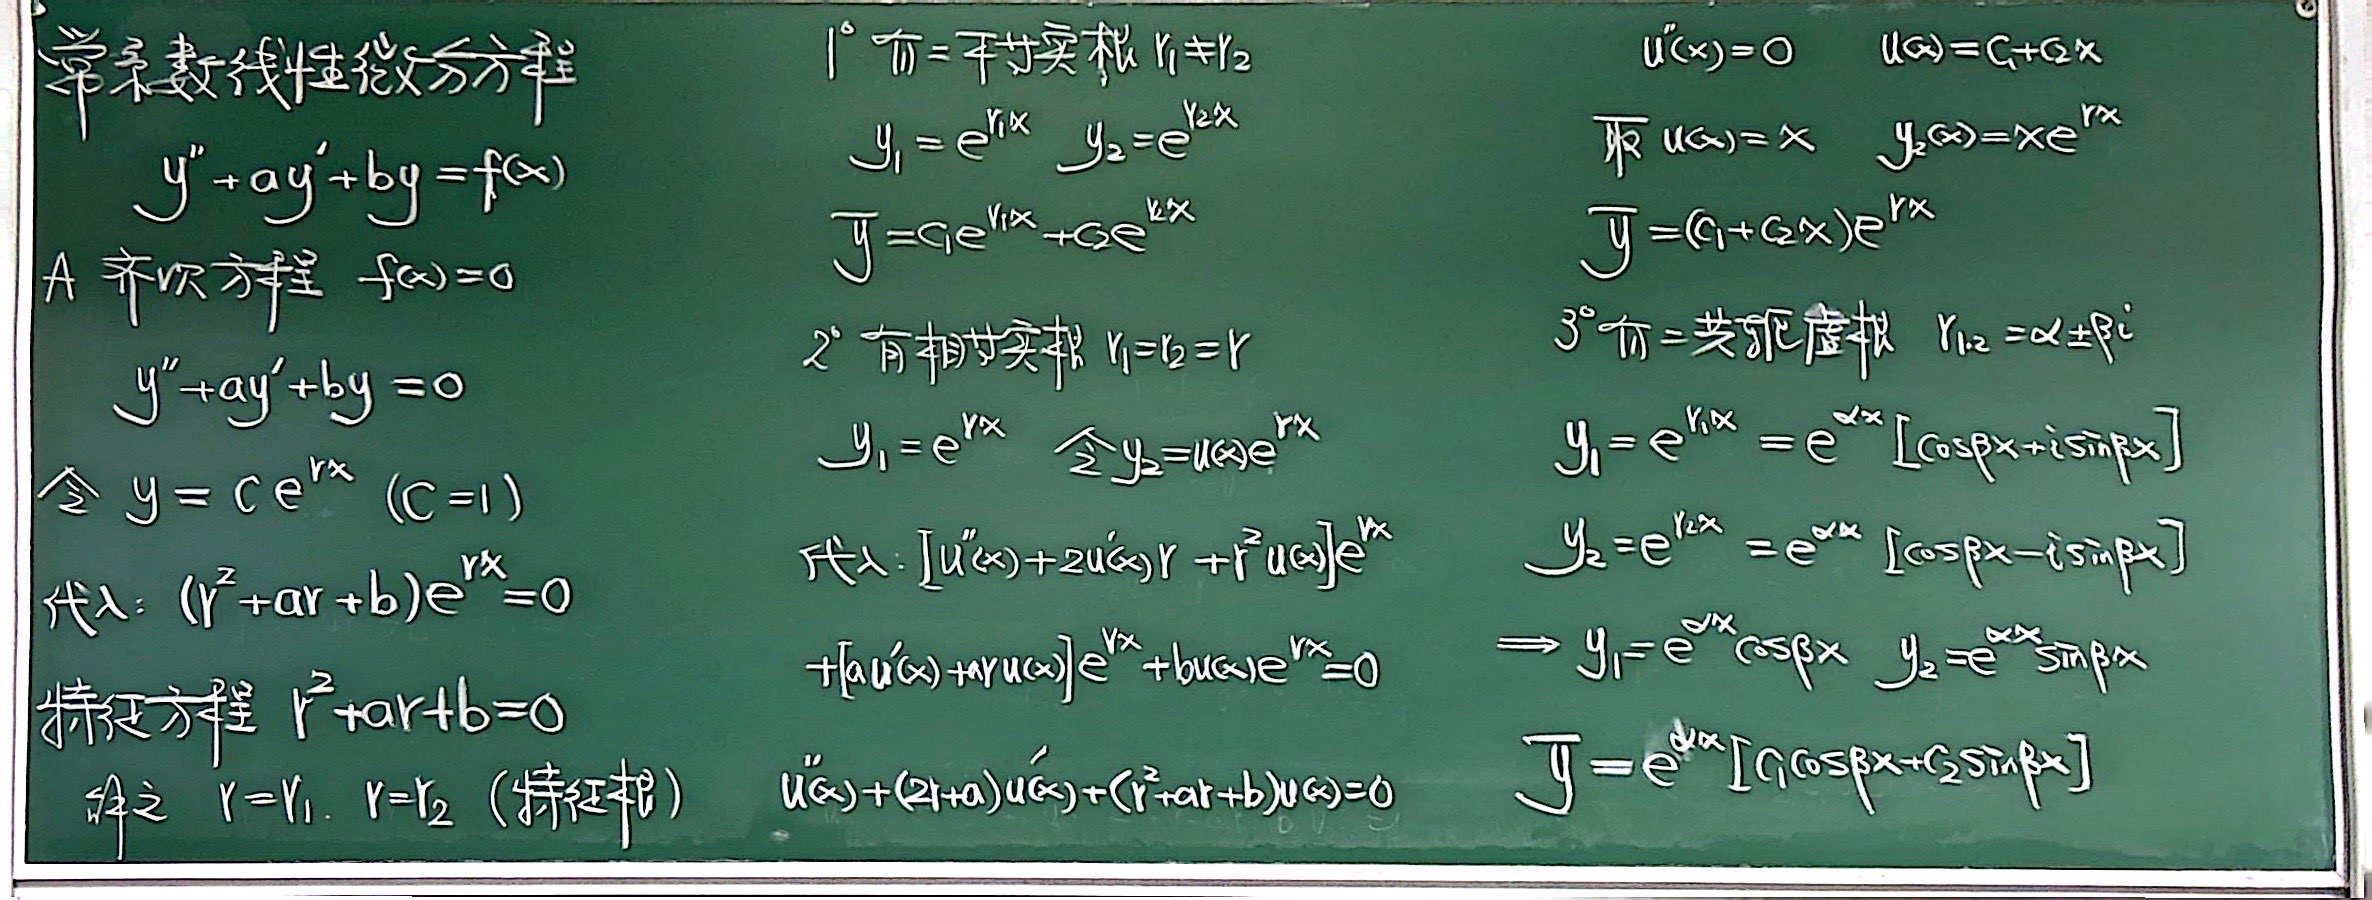 常系数线性微分方程
y''+ay'+by=f(x)
A 齐次方程 f(x)=0
y''+ay'+by=0
令 y=Ce^{rx} (C=1)
代入: (r²+ar+b)e^{rx}=0
特征方程 r²+ar+b=0
解之 r=r₁. r=r₂ (特征根)
1° 有二不等实根 r₁≠r₂
y₁=e^{r₁x} y₂=e^{r₂x}
ȳ=C₁e^{r₁x}+C₂e^{r₂x}
2° 有相等实根 r₁=r₂=r
y₁=e^{rx} 令y₂=u(x)e^{rx}
代入: [u''(x)+2u'(x)r+r²u(x)]e^{rx}
+[au'(x)+aru(x)]e^{rx}+bu(x)e^{rx}=0
u''(x)+(2r+a)u'(x)+(r²+ar+b)u(x)=0
u''(x)=0 u(x)=C₁+C₂x
取 u(x)=x y₂(x)=xe^{rx}
ȳ=(C₁+C₂x)e^{rx}
3° 有二共轭虚根 r₁.₂=α±βi
y₁=e^{r₁x}=e^{αx}[cosβx+isinβx]
y₂=e^{r₂x}=e^{αx}[cosβx-isinβx]
⟹ y₁=e^{αx}cosβx y₂=e^{αx}sinβx
ȳ=e^{αx}[C₁cosβx+C₂sinβx]